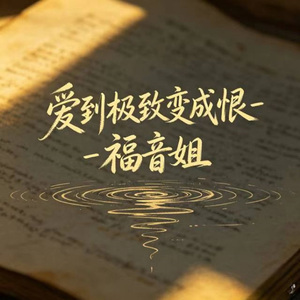 爱到极致变成恨-
-福音姐